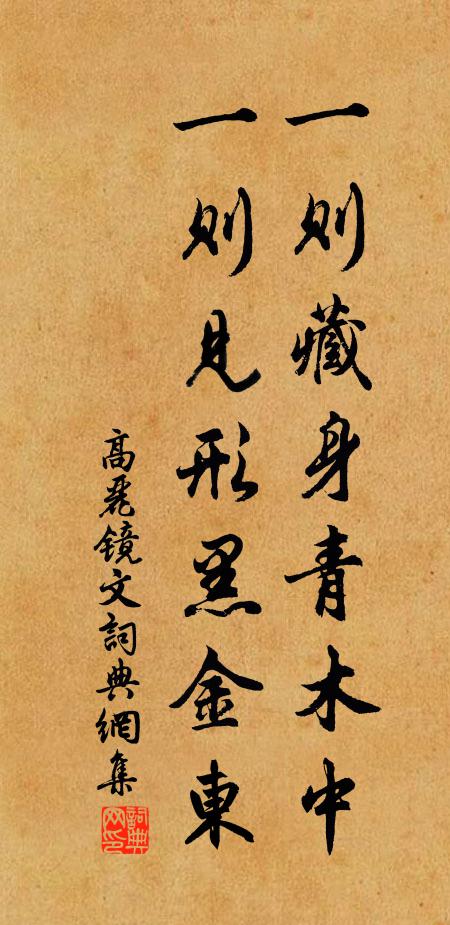 一則藏身青木中
一則見形黑金東
高麗鏡文詞典網集
詞典網印